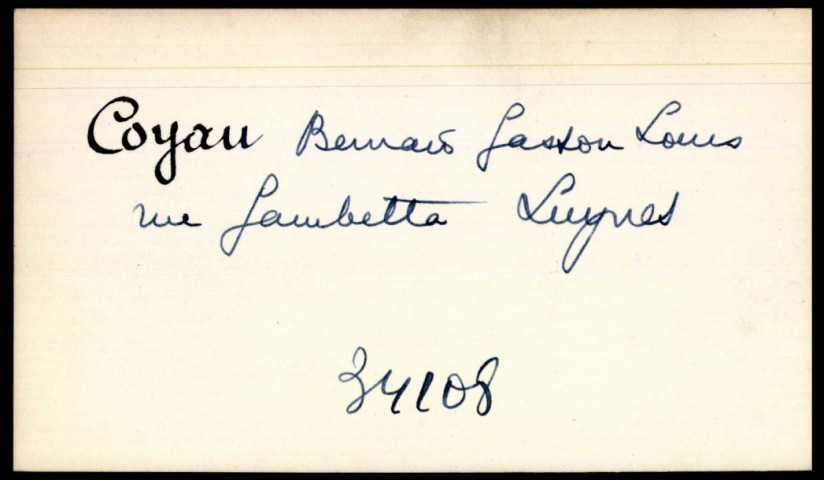 Coyau Bernard Gaston Louis
rue Gambetta Luynes
34108